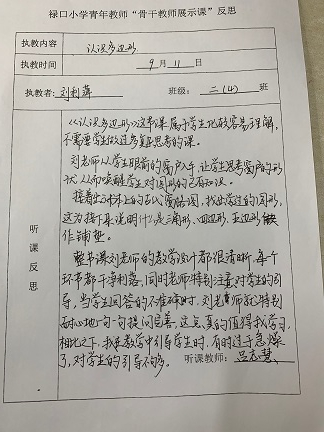 禄口小学青年教师“骨干教师展示课”反思
执教内容 认识多边形
执教时间 9月11日
执教者: 刘利萍 班级: 二(4) 班
听课反思
《认识多边形》这节课属于学生比较容易理解,
不需要学生做过多复杂思考的课。
刘老师从学生眼前的窗户入手,让学生思考窗户的形
状,从而唤醒学生对图形的已有知识。
接着出示书上的古代窗格图,找出学过的图形,
这为接下来说明什么是三角形、四边形、五边形
作铺垫。
整节课刘老师的教学设计都很清晰,每个
环节都干净利落,同时老师特别注意对学生的引
导,当学生回答的不准确时,刘老师就特别
耐心地一句一句提问完善,这点真的值得我学习,
相比之下,我在教学中引导学生时,有时过于急燥
了,对学生的引导不够。
听课教师: 吕志慧